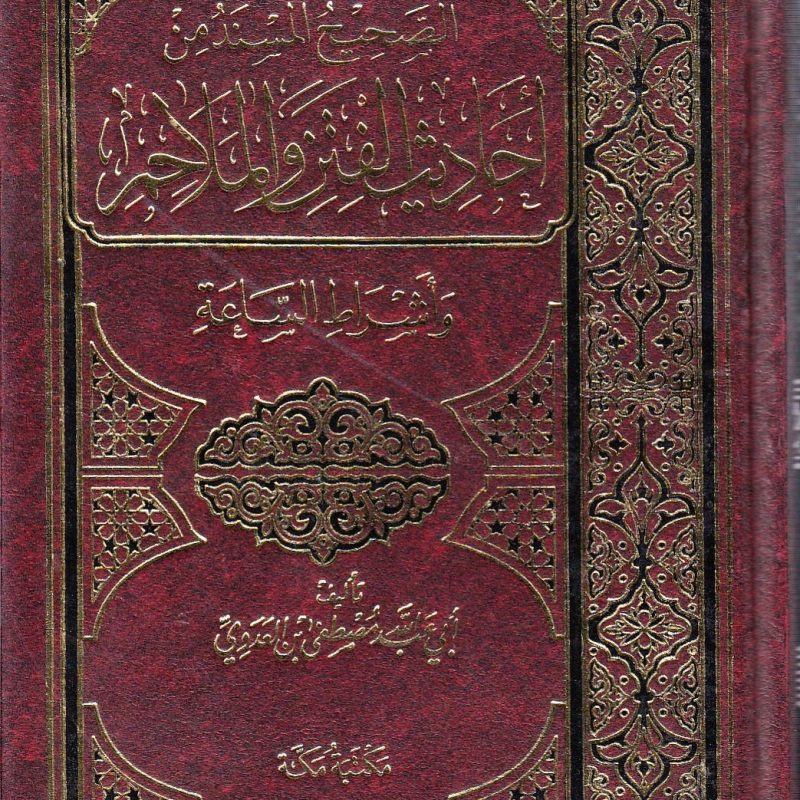 الصَّحِيحُ المُسْنَدُ مِنْ
أَحَادِيثِ الفِتَنِ وَالمَلَاحِمِ
وَأَشْرَاطِ السَّاعَةِ
تأليف
أَبي عَبْدِ اللَّهِ مُصْطَفَى بْنِ العَدَوِيِّ
مَكْتَبَةُ مَكَّة